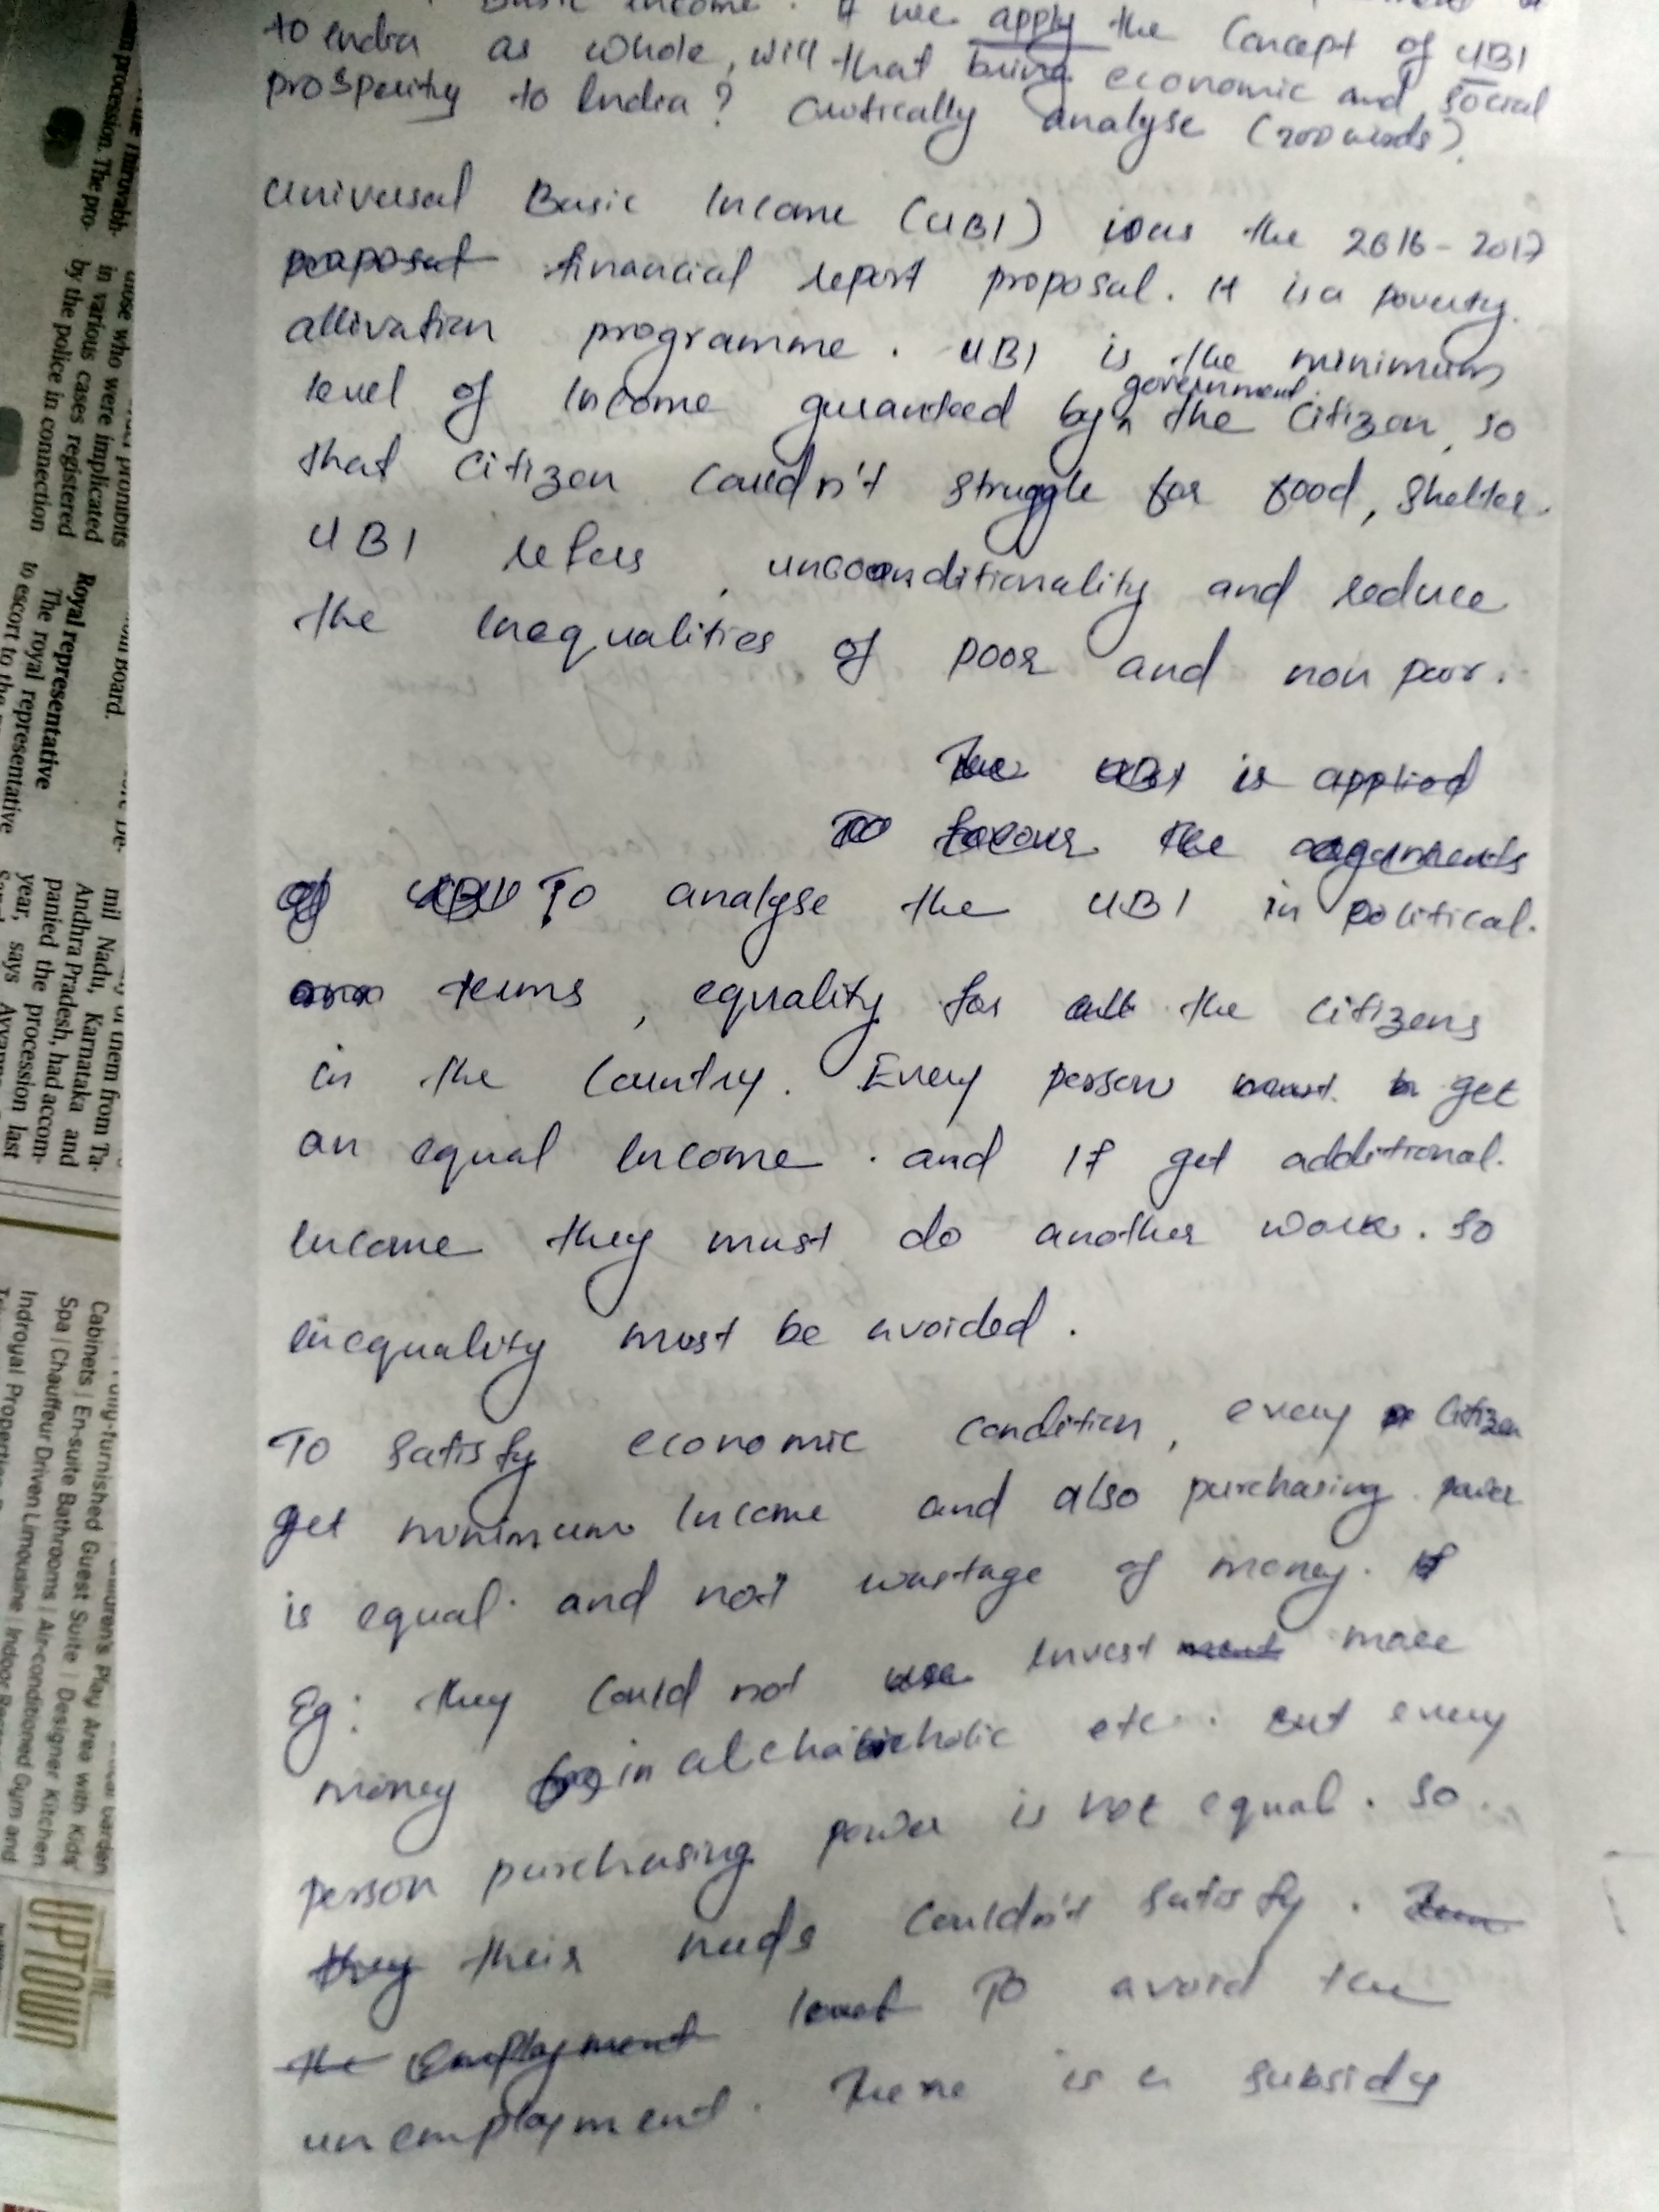 Basic Income. If we apply the Concept of UBI
to India as whole, will that bring economic and social
prosperity to India? Critically analyse (200 words).
Universal Basic Income (UBI) was the 2016-2017
proposal financial report proposal. It is a poverty
allivation programme. UBI is the minimum
level of Income guaranteed by government the Citizen, so
that Citizen Couldn't struggle for food, Shelter.
UBI refers, unconditionality and reduce
the Inequalities of poor and non poor.
The UBI is applied
To favour the arguments
of UBI To analyse the UBI in political
terms, equality for all the citizens
in the Country. Every person want to get
an equal Income. and If get additional
Income they must do another work. So
inequality must be avoided.
To satisfy economic condition, every Citizen
get minimum Income and also purchasing power
is equal. and not wastage of money. If
Eg: they Could not use Invest ment more
money in etc. But every
person purchasing power is not equal. So
they their needs Couldn't satisfy.
the Employment To avoid the
unemployment. There is a subsidy
prohibits
those who were implicated
in various cases registered
by the police in connection
procession. The pro-
Board.
Royal representative
The royal representative
to escort to the
of them from Ta-
mil Nadu, Karnataka and
Andhra Pradesh, had accom-
panied the procession last
year, says
Fully-furnished Guest Suite | Designer Kitchen
Cabinets | En-suite Bathrooms | Air-conditioned Gym and
Spa | Chauffeur Driven Limousine | Indoor
Indroyal
Children's Play Area with Kids'
Garden
THE
UPTOWN